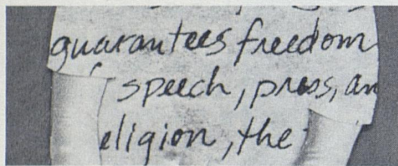 guarantees freedom
speech, press, an
eligion, the